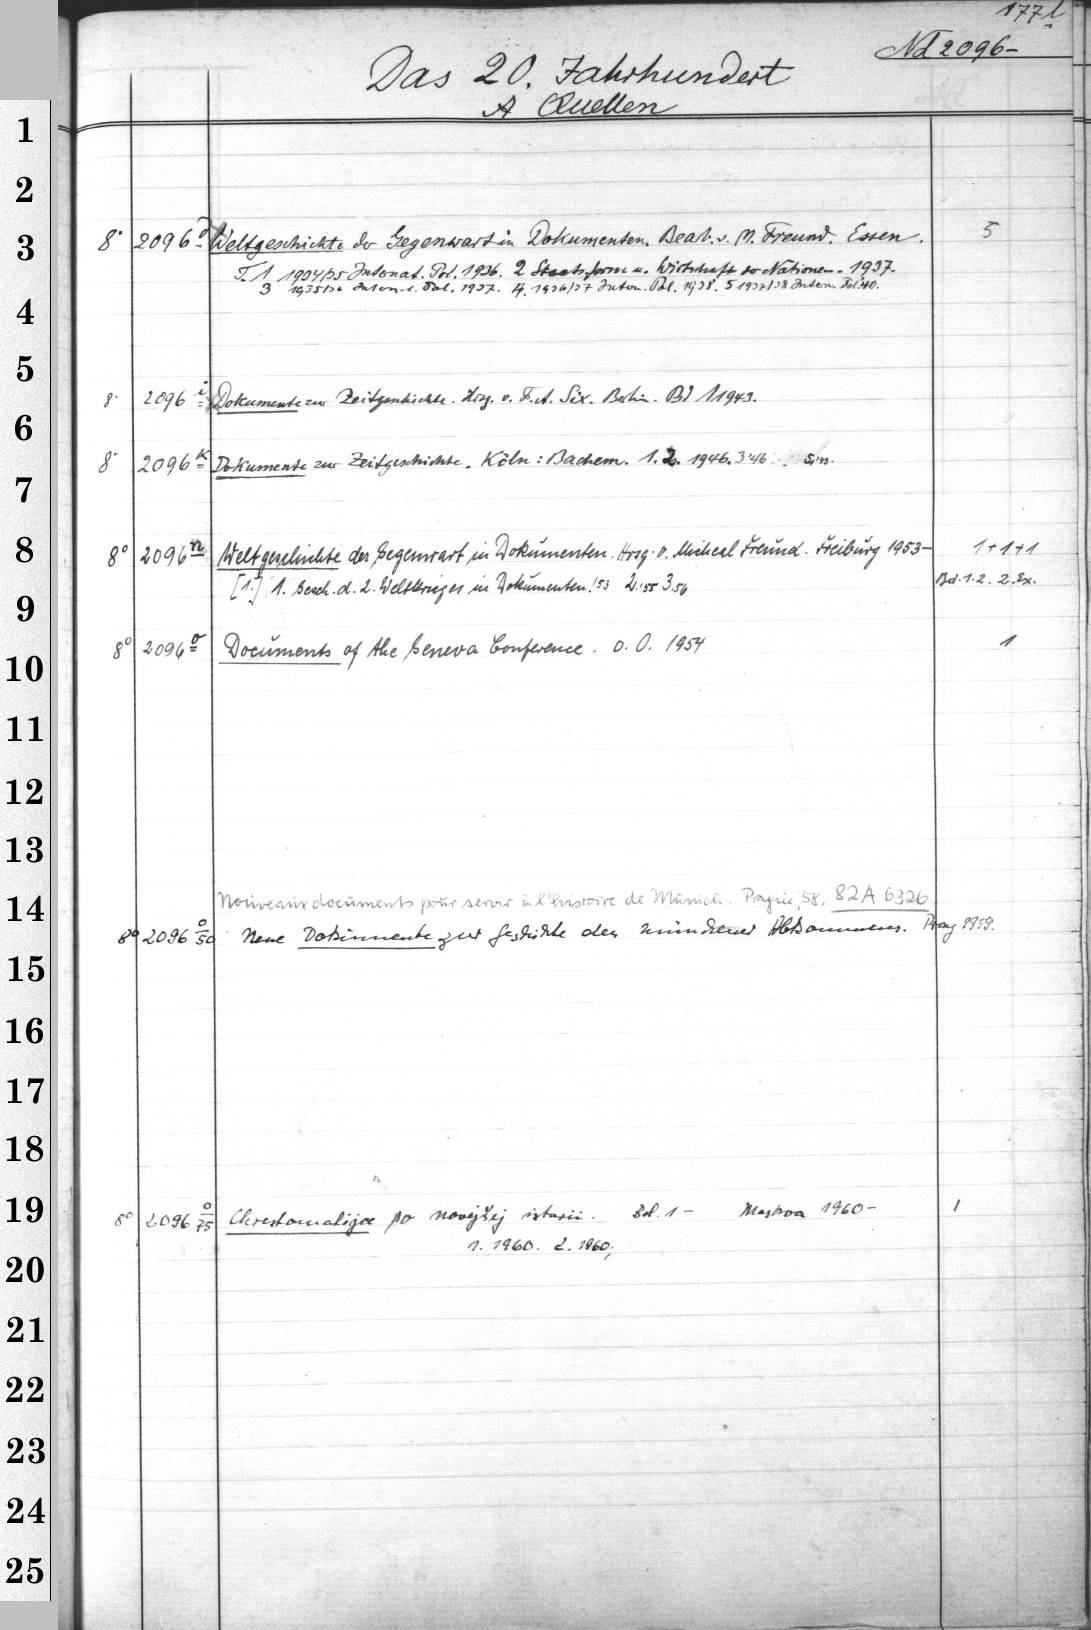 177l
Nd 2096-
Das 20. Jahrhundert
A Quellen
1
2
3
8° 2096 Weltgeschichte der Gegenwart in Dokumenten. Bearb. v. M. Freund. Essen. 5
T. 1 1934/35 Internat. Pol. 1936. 2 Staatsform u. Wirtschaft der Nationen. 1937.
3 1935/36 Intern. Pol. 1937. 4. 1936/37 Intern. Pol. 1938. 5 1937/38 Intern. Pol. 40.
4
5
8° 2096 i Dokumente zur Zeitgeschichte. Hrsg. v. F. A. Six. Berlin. Bd 1 1943.
6
8° 2096 k Dokumente zur Zeitgeschichte. Köln: Bachem. 1. 2. 1946. 3'46
7
8
8° 2096 n Weltgeschichte der Gegenwart in Dokumenten. Hrsg. v. Micheal Freund. Freiburg 1953- 1+1+1
[1.] 1. Gesch. d. 2. Weltkrieges in Dokumenten. '53 2.'55 3.56 Bd. 1. 2. 2. Ex.
9
8° 2096 o Documents of the Geneva Conference. o. O. 1954 1
10
11
12
13
14
Nouveaux documents pour servir à l'histoire de Munich. Prague, 58. 82 A 6326
8° 2096 o/50 Neue Dokumente zur Geschichte des münchener Abkommens. Prag 1959.
15
16
17
18
19
8° 2096 o/75 Chrestomatija po novejšej istorii. Bd. 1- Moskva 1960- 1
1. 1960. 2. 1960;
20
21
22
23
24
25